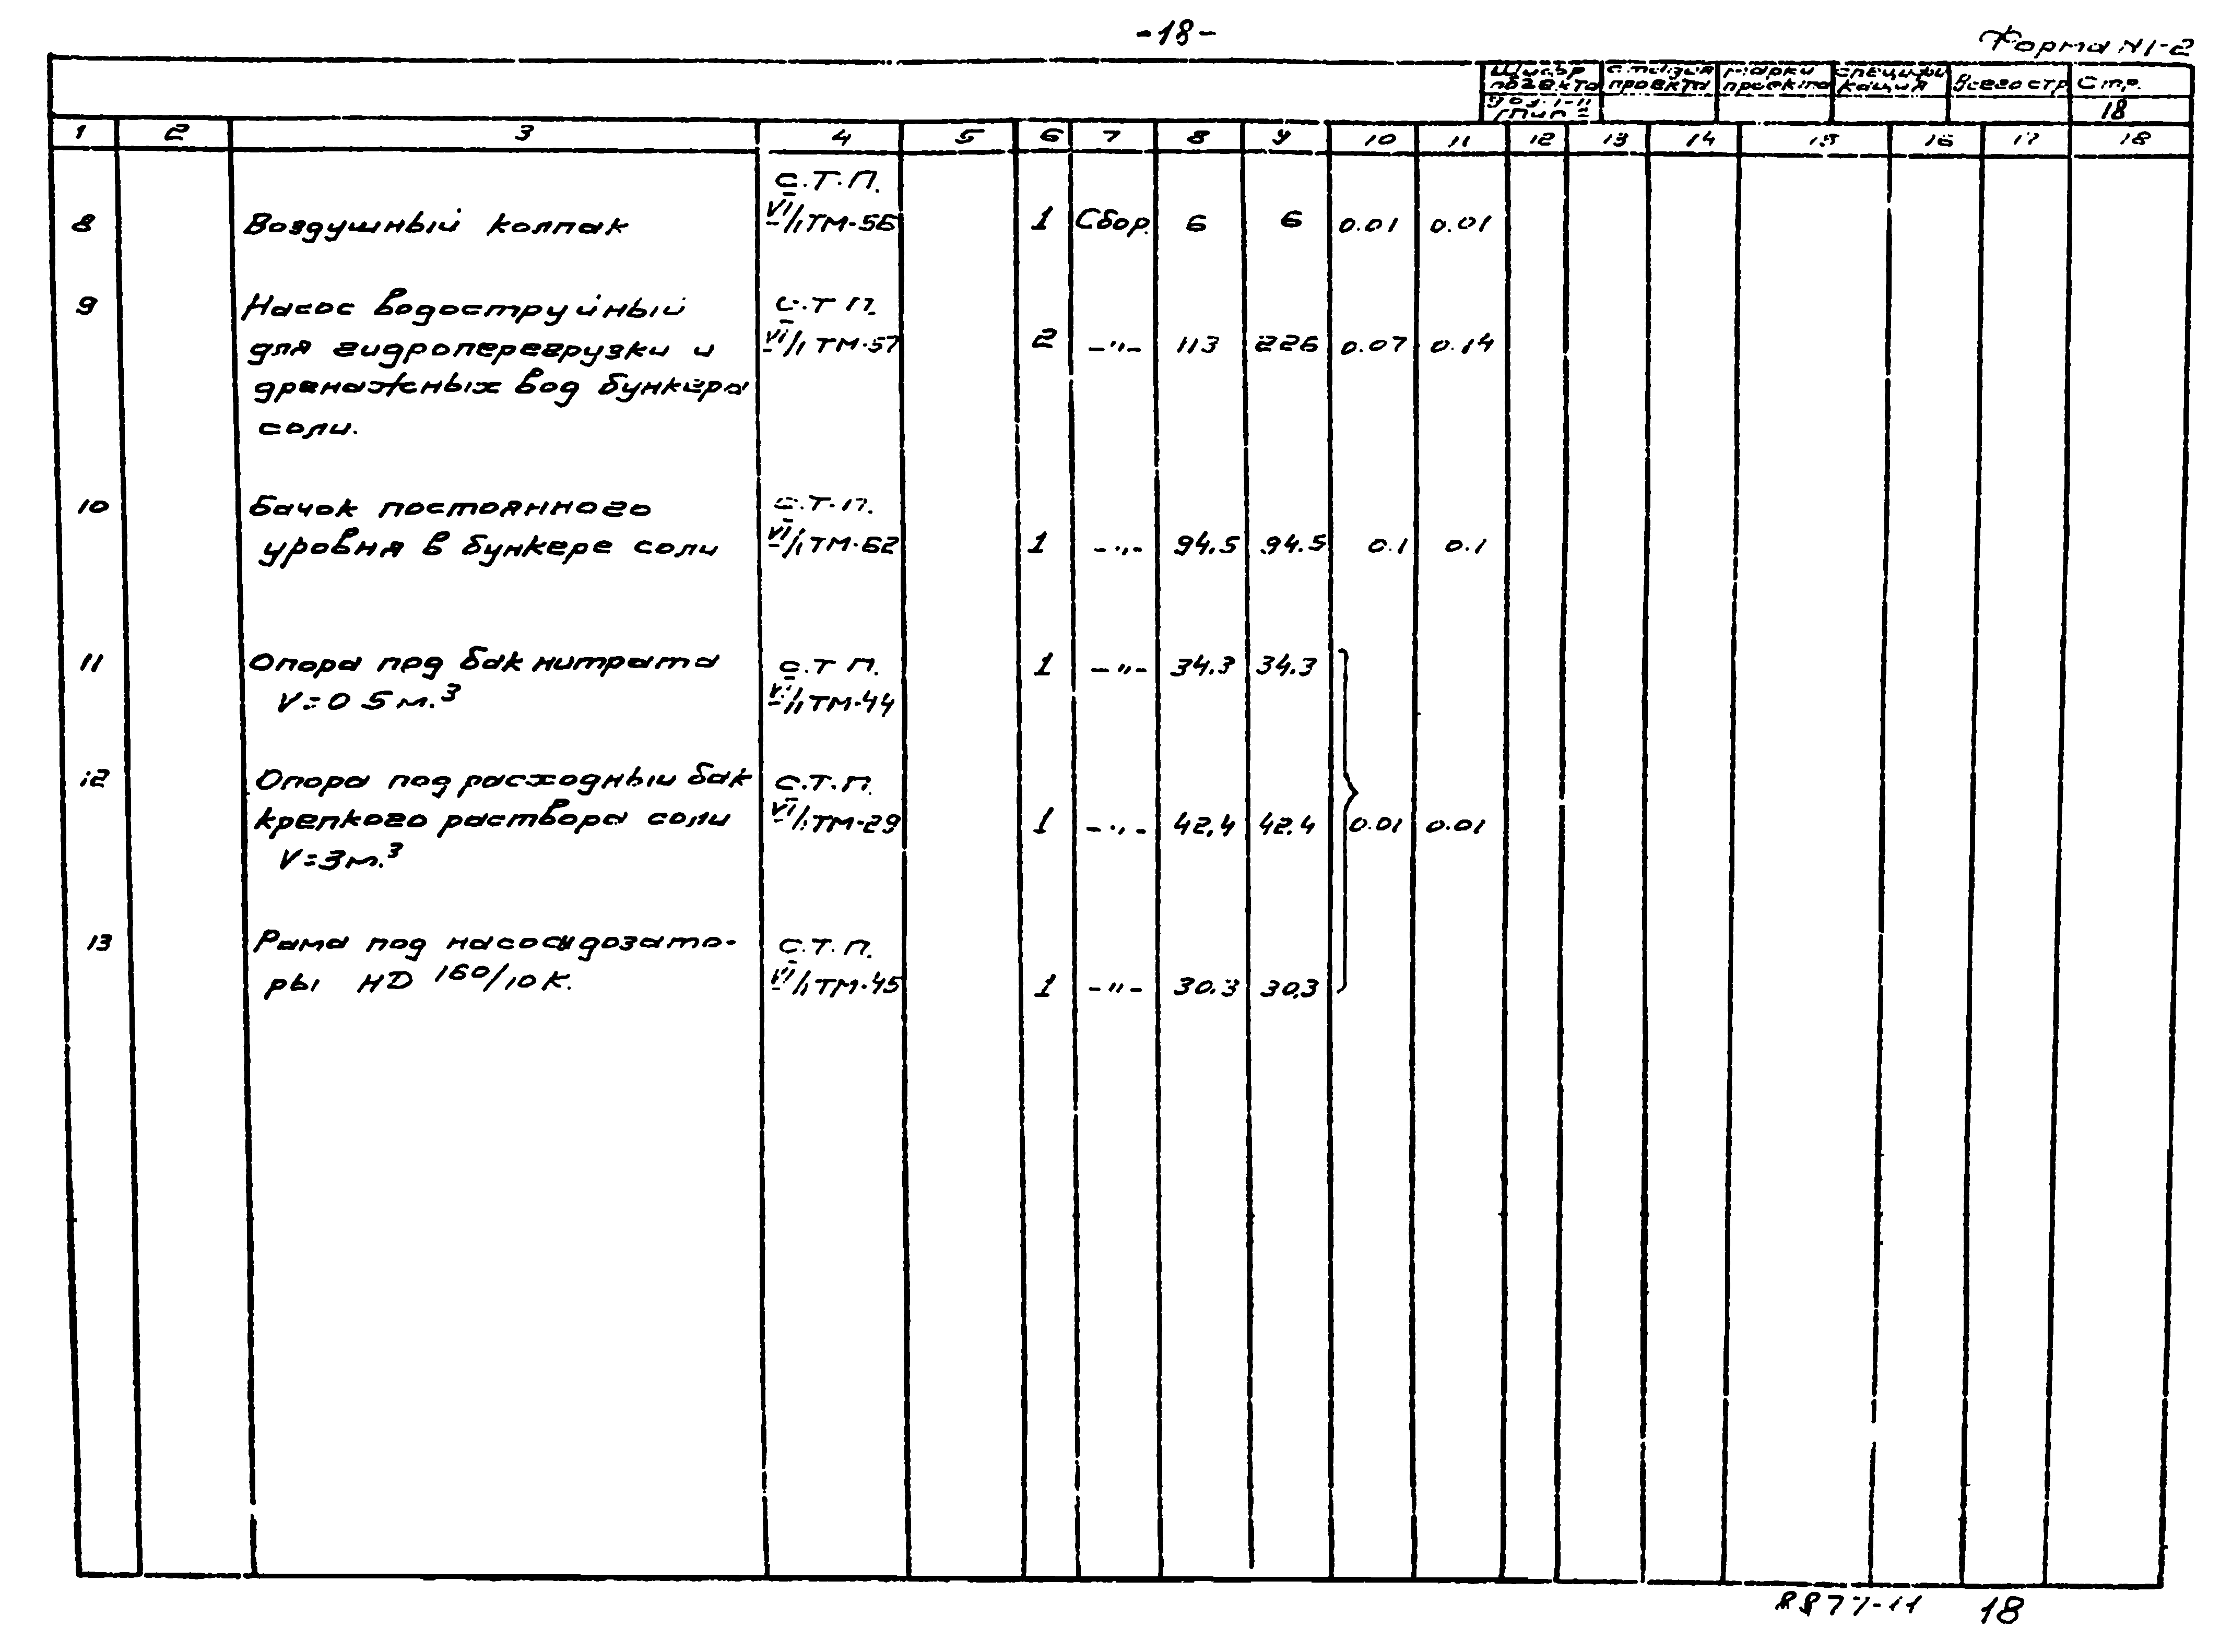 -18-
Форма №1-2
Шифр объекта Стадия проекта Марка проекта Специфи кация Всего стр. Стр.
18
1 2 3 4 5 6 7 8 9 10 11 12 13 14 15 16 17 18
С.Т.П.
8 Воздушный колпак VI/1 ТМ-56 1 Сбор. 6 6 0.01 0.01
9 Насос водоструйный С.Т.П.
для гидроперегрузки и VI/1 ТМ-57 2 -"- 113 226 0.07 0.14
дренажных вод бункера
соли.
10 Бачок постоянного С.Т.П.
уровня в бункере соли VI/1 ТМ-62 1 -"- 94.5 94.5 0.1 0.1
11 Опора под бак нитрата С.Т.П. 1 -"- 34.3 34.3
V=0.5м.³ VI/1 ТМ-44
12 Опора под расходный бак С.Т.П.
крепкого раствора соли VI/1 ТМ-29 1 -"- 42,4 42.4 0.01 0.01
V=3м.³
13 Рама под насосы дозато- С.Т.П.
ры НД 160/10К. VI/1 ТМ-45 1 -"- 30.3 30.3
8877-11 18